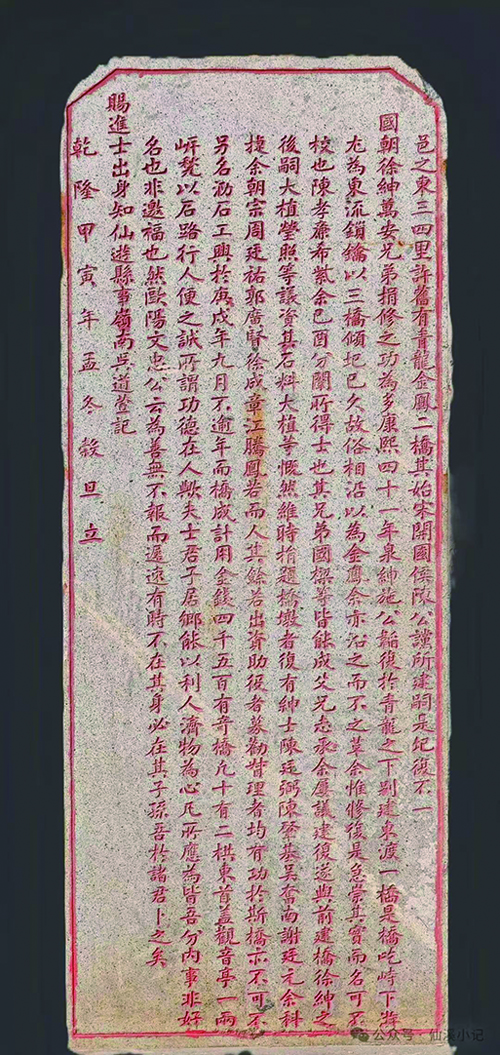 邑之東三四里許舊有青龍金鳳二橋其始宋開國侯陳公謹所建嗣是圮復不一
國朝徐紳萬安兄弟捐修之功為多康熙四十一年泉紳施公韜復於青龍之下別建東渡一橋是橋屹峙下游
尤為東流鎖鑰以三橋傾圮已久故俗相沿以為金鹰余亦沿之而不之革余惟修復是急崇其實而名可不
校也陳孝廉希紫余己酉分闈所得士也其兄弟國樑等皆能成父兄志承余屢議建復遂與前建橋徐紳之
後嗣大植螢照等議資其石料大植等慨然維時捐題橋墩者復有紳士陳廷弼陳肇基吳奮南謝廷元余科
捷余朝宗周廷祐郊廣督徐成章江騰鳳若而人其餘若出資助役者募勸督理者均有功於斯橋亦不可不
另名泐石工興於庚戌年九月不逾年而橋成計用金錢四千五百有奇橋凡十有二栱東首蓋觀音亭一兩
岍甃以石路行人便之誠所謂功德在人歟夫士君子居鄉能以利人濟物為心凡所應為皆吾分內事非好
名也非邀福也然歐陽文忠公云為善無不報而遲速有時不在其身必在其子孫吾於諸君卜之矣
賜進士出身知仙遊縣事嶺南吳道萱記
乾隆甲寅年孟冬穀旦立
公众号·仙溪小记